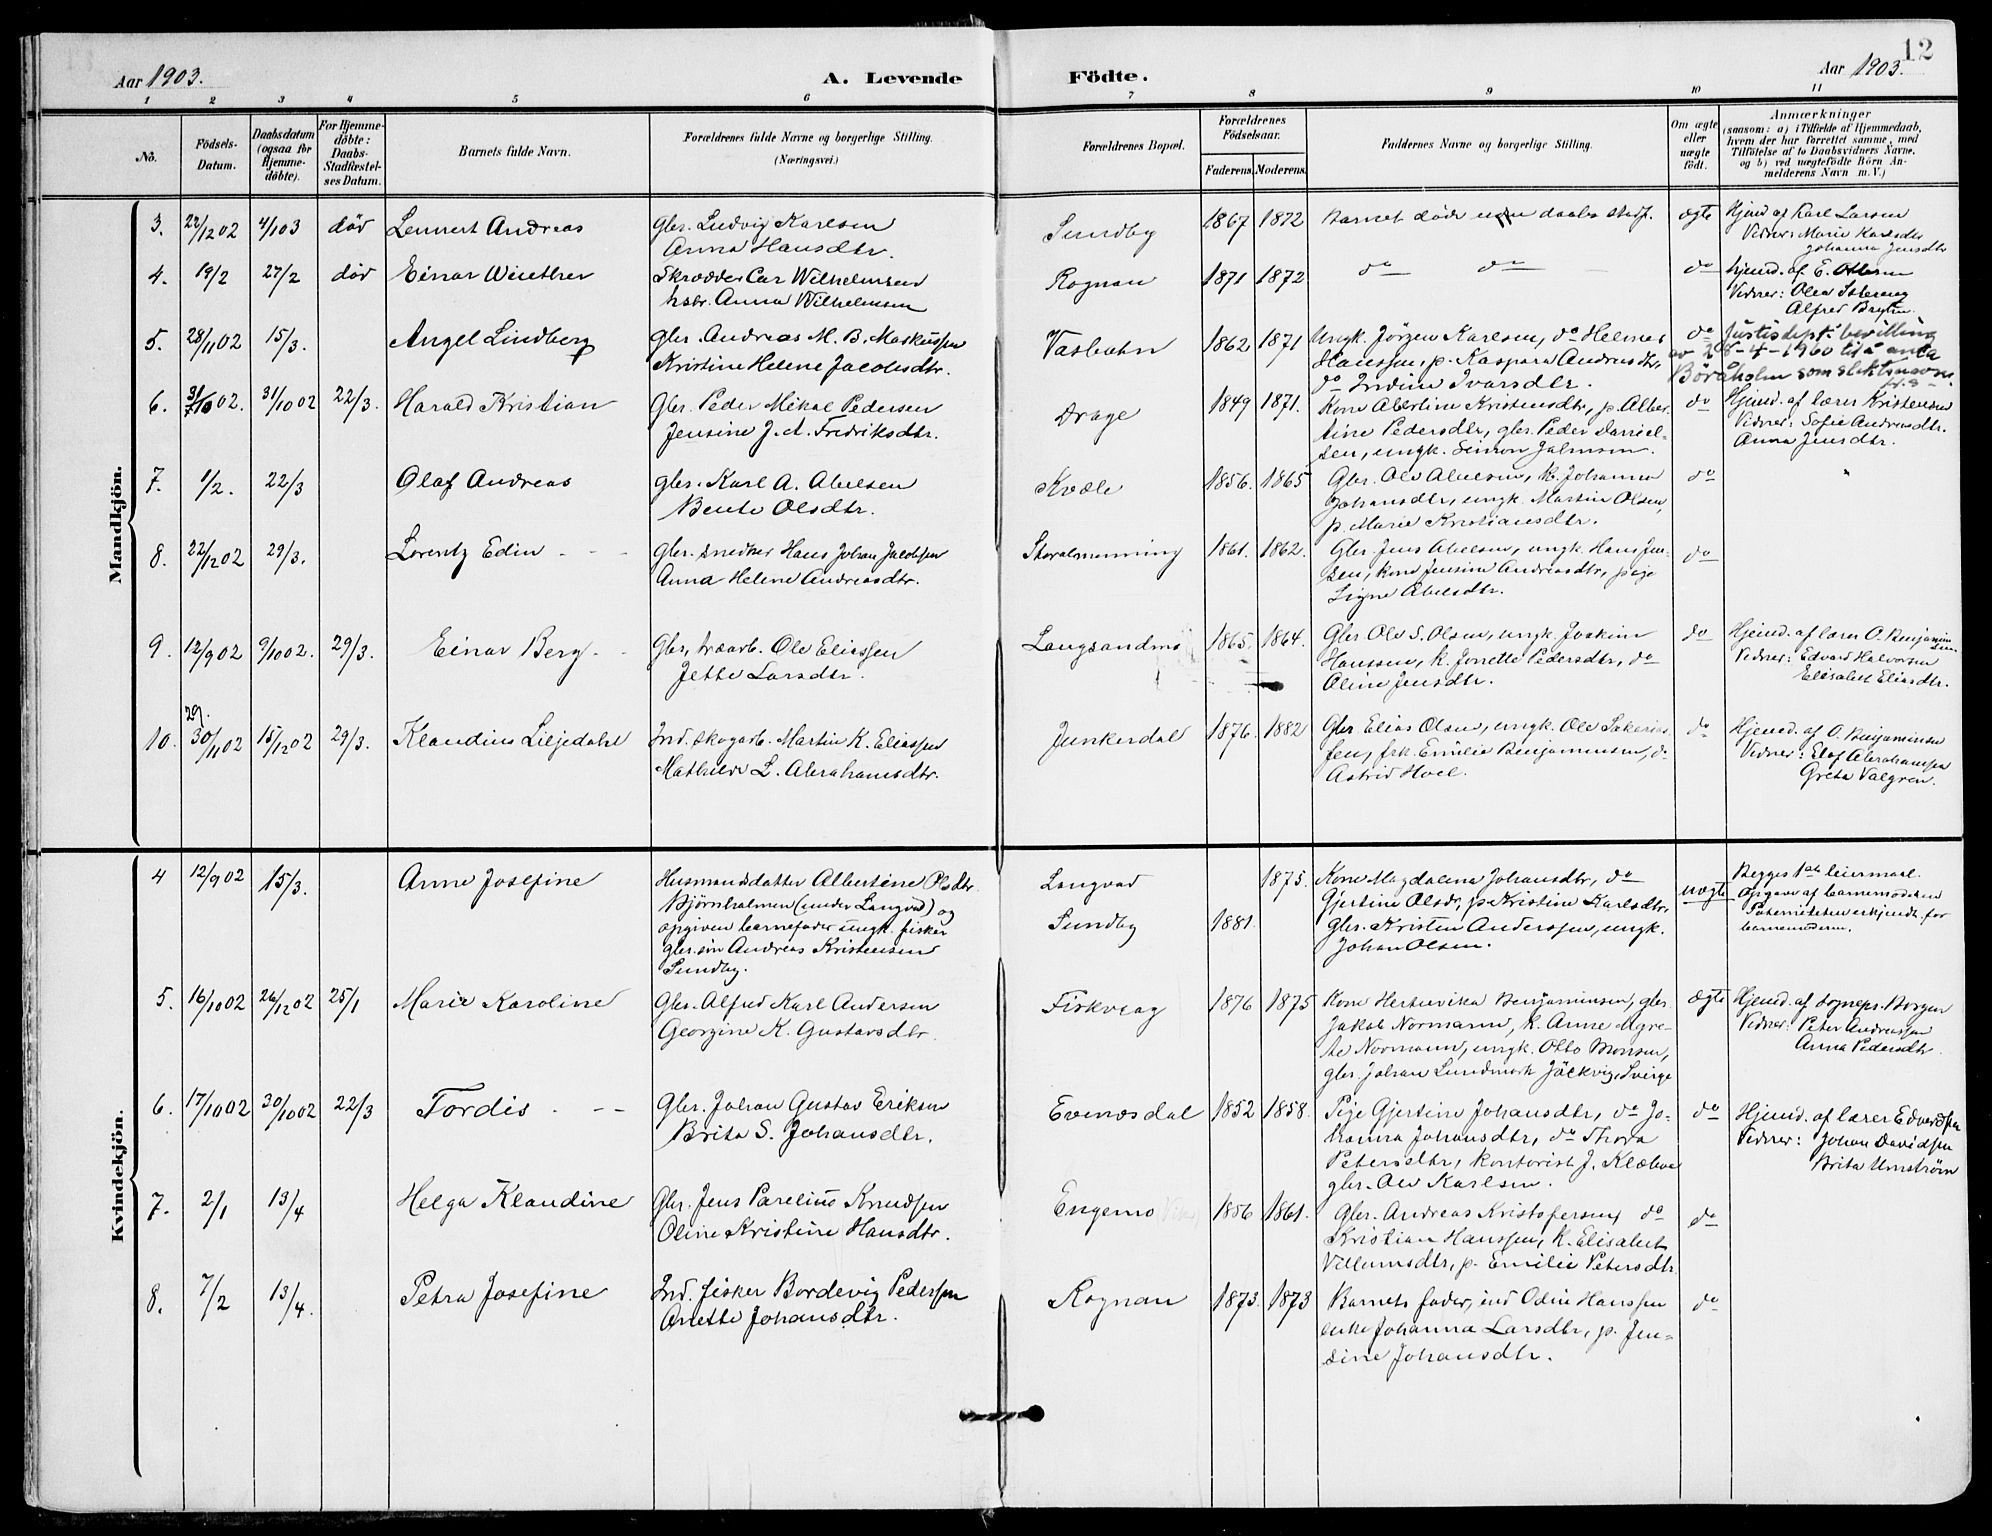 12
Aar 1903.
A. Levende
Födte.
Aar 1903.
1 2 3 4 5 6 7 8 9 10 11
No.
Födsels-
Datum.
Daabsdatum
(ogsaa for
Hjemme-
döbte).
For Hjemme-
döbte:
Daabs-
Stadfæstel-
ses Datum.
Barnets fulde Navn.
Forældrenes fulde Navne og borgerlige Stilling.
(Næringsvei.)
Forældrenes Bopæl.
Forældrenes
Födselsaar.
Faderens.
Moderens.
Faddernes Navne og borgerlige Stilling.
Om ægte
eller
uægte
födt.
Anmærkninger
(saasom: a) i Tilfælde af Hjemmedaab,
hvem der har forrettet samme, med
Tilföielse af to Daabsvidners Navne,
og b) ved uægtefödte Börn An-
melderens Navn m. V.)
Mandkjön.
3. 22/12 02 4/1 03 död Lennert Andreas
Gbr. Ludvig Karlsen
Anna Hansdtr.
Sundby 1867 1872
Barnet döde uden daabs stadf.
ægte
Hjmd af Karl Larsen
Vidner: Marie Karlsdtr
Johanna Jensdtr
4. 19/2 27/2 död Einar Winther
Skrædder Car Wilhelmsen
hsbr. Anna Wilhelmsen
Rognan 1871 1872
do do
do
hjemd. af E. Ottesen
Vidner: Olea
Alfred
5. 28/11 02 15/3. Angel Lindberg
gbr. Andreas M. B. Markussen
Kristine Helene Jacobsdtr.
Vasbotn 1862 1871
Ungk. Jörgen Karlsen, do Helmer
Hanssen, p. Kaspara Andreasdtr,
do Indine Ivarsdtr.
do
Justisdept. bevilling
av 28-4-1960 til å anta
Böråholm som slektsnavn.
6. 31/10 02. 31/10 02 22/3. Harald Kristian
Gbr. Peder Mikal Pedersen
Jensine J. A. Fredriksdtr.
Drage 1849 1871.
Kone Albertine Kristensdtr, p. Alber-
tine Pedersdtr, gbr. Peder Daniel-
sen, ungk. Simon Jalmsen.
do
Hjemd. af lærer Kristensen
Vidner: Sofie Andreasdtr.
Anna Jensdtr.
7. 1/2. 22/3 Olaf Andreas
gbr. Karl A. Abelsen
Bente Olsdtr.
Kvæle 1856. 1865
Gbr. Ole Abelsen, k. Johanna
Johansdtr, ungk. Martin Olsen,
p. Marie Kristiansdtr.
do
8. 22/12 02 29/3. Lorentz Edin
gbr. snedker Hans Johan Jacobsen
Anna Helene Andreasdtr.
Storalmenning 1861. 1862.
Gbr. Jens Abelsen, ungk. Hans Jen-
sen, kone Jensine Andreasdtr, pige
Signe Abelsdtr.
do
9. 12/9 02 9/10 02. 29/3. Einar Berg
Gbr, træarb. Ole Eliassen
Jette Larsdtr.
Langsandmo 1865. 1864.
Gbr Ole S. Olsen, ungk. Joakim
Hanssen, k. Jonette Pedersdtr, do
Oline Jensdtr.
do
Hjemd. af lærer O. Benjamin
sen.
Vidner: Edvard Halvorsen
Elisabet Eliasdtr.
29.
10. 30/11 02 15/12 02 29/3. Klaudius Liljedahl
Ind. skogarb. Martin K. Eliassen
Mathilde L. Abrahamsdtr.
Junkerdal 1876. 1882
Gbr Elias Olsen, ungk. Ole Sakarias-
sen, frk. Emilie Benjaminsen, do
Astrid Hoel.
do
Hjemd. af O. Benjaminsen
Vidner: Elof Abrahamsen
Greta Valgren.
Kvindekjön.
4 12/9 02 15/3. Anne Josefine
Husmandsdatter Albertine Olsdtr.
Bjørnholmen (under Langvad) og
opgiven barnefader ungk. fisker
gbr.sön Andreas Kristensen
Sundby.
Langvad 1875.
Sundby 1881.
Kone Magdalena Johansdtr, do
Gjertine Olsdr, p. Kristine Karlsdtr,
gbr. Kristen Anderssen, ungk.
Johan Olsen.
uægte
Begges 1ste leiermaal.
Opgave af barnemoderen
Paterniteten erkjendt for
barnemoderen.
5. 16/10 02 26/12 02 25/1 Marie Karoline
Gbr. Alfred Karl Andersen
Georgine K. Gustavsdtr.
Fiskvaag 1876 1875
Kone Herturika Benjaminsen, gbr
Jakob Normann, k. Anne Mgre-
te Normann, ungk. Otto Monsen,
gbr. Johan Lundmark Jäckvig, Sverge
ægte
Hjemd. af sognepr. Borgen
Vidner: Peter Andreassen
Anna Pedersdtr.
6. 17/10 02 30/10 02 22/3 Tordis
Gbr. Johan Gustav Eriksen
Brita S. Johansdtr.
Evenesdal 1852 1858.
Pige Gjertine Johansdtr, do Jo-
hanna Johansdtr, do Thora
Petersdtr, kontorist J. Klæboe
gbr. Ole Karlsen.
do
Hjemd. af lærer Edvardsen
Vidner: Johan Davidsen
Brita Umström
7. 2/1 13/4 Helga Klaudine
Gbr. Jens Parelius Knudsen
Oline Kristine Hansdtr.
Engemo 1856 1861.
Gbr. Andreas Kristofersen, do
Kristian Hanssen, k. Elisabet
Villumsdtr, p. Emilie Petersdtr
do
8. 7/2 13/4. Petra Josefine
Ind. fisker Bordevig Pedersen
Anette Johansdtr.
Rognan 1873. 1873
Barnets fader, ind Odin Hanssen
enke Johanna Larsdtr, p. Jen-
sine Johansdtr.
do